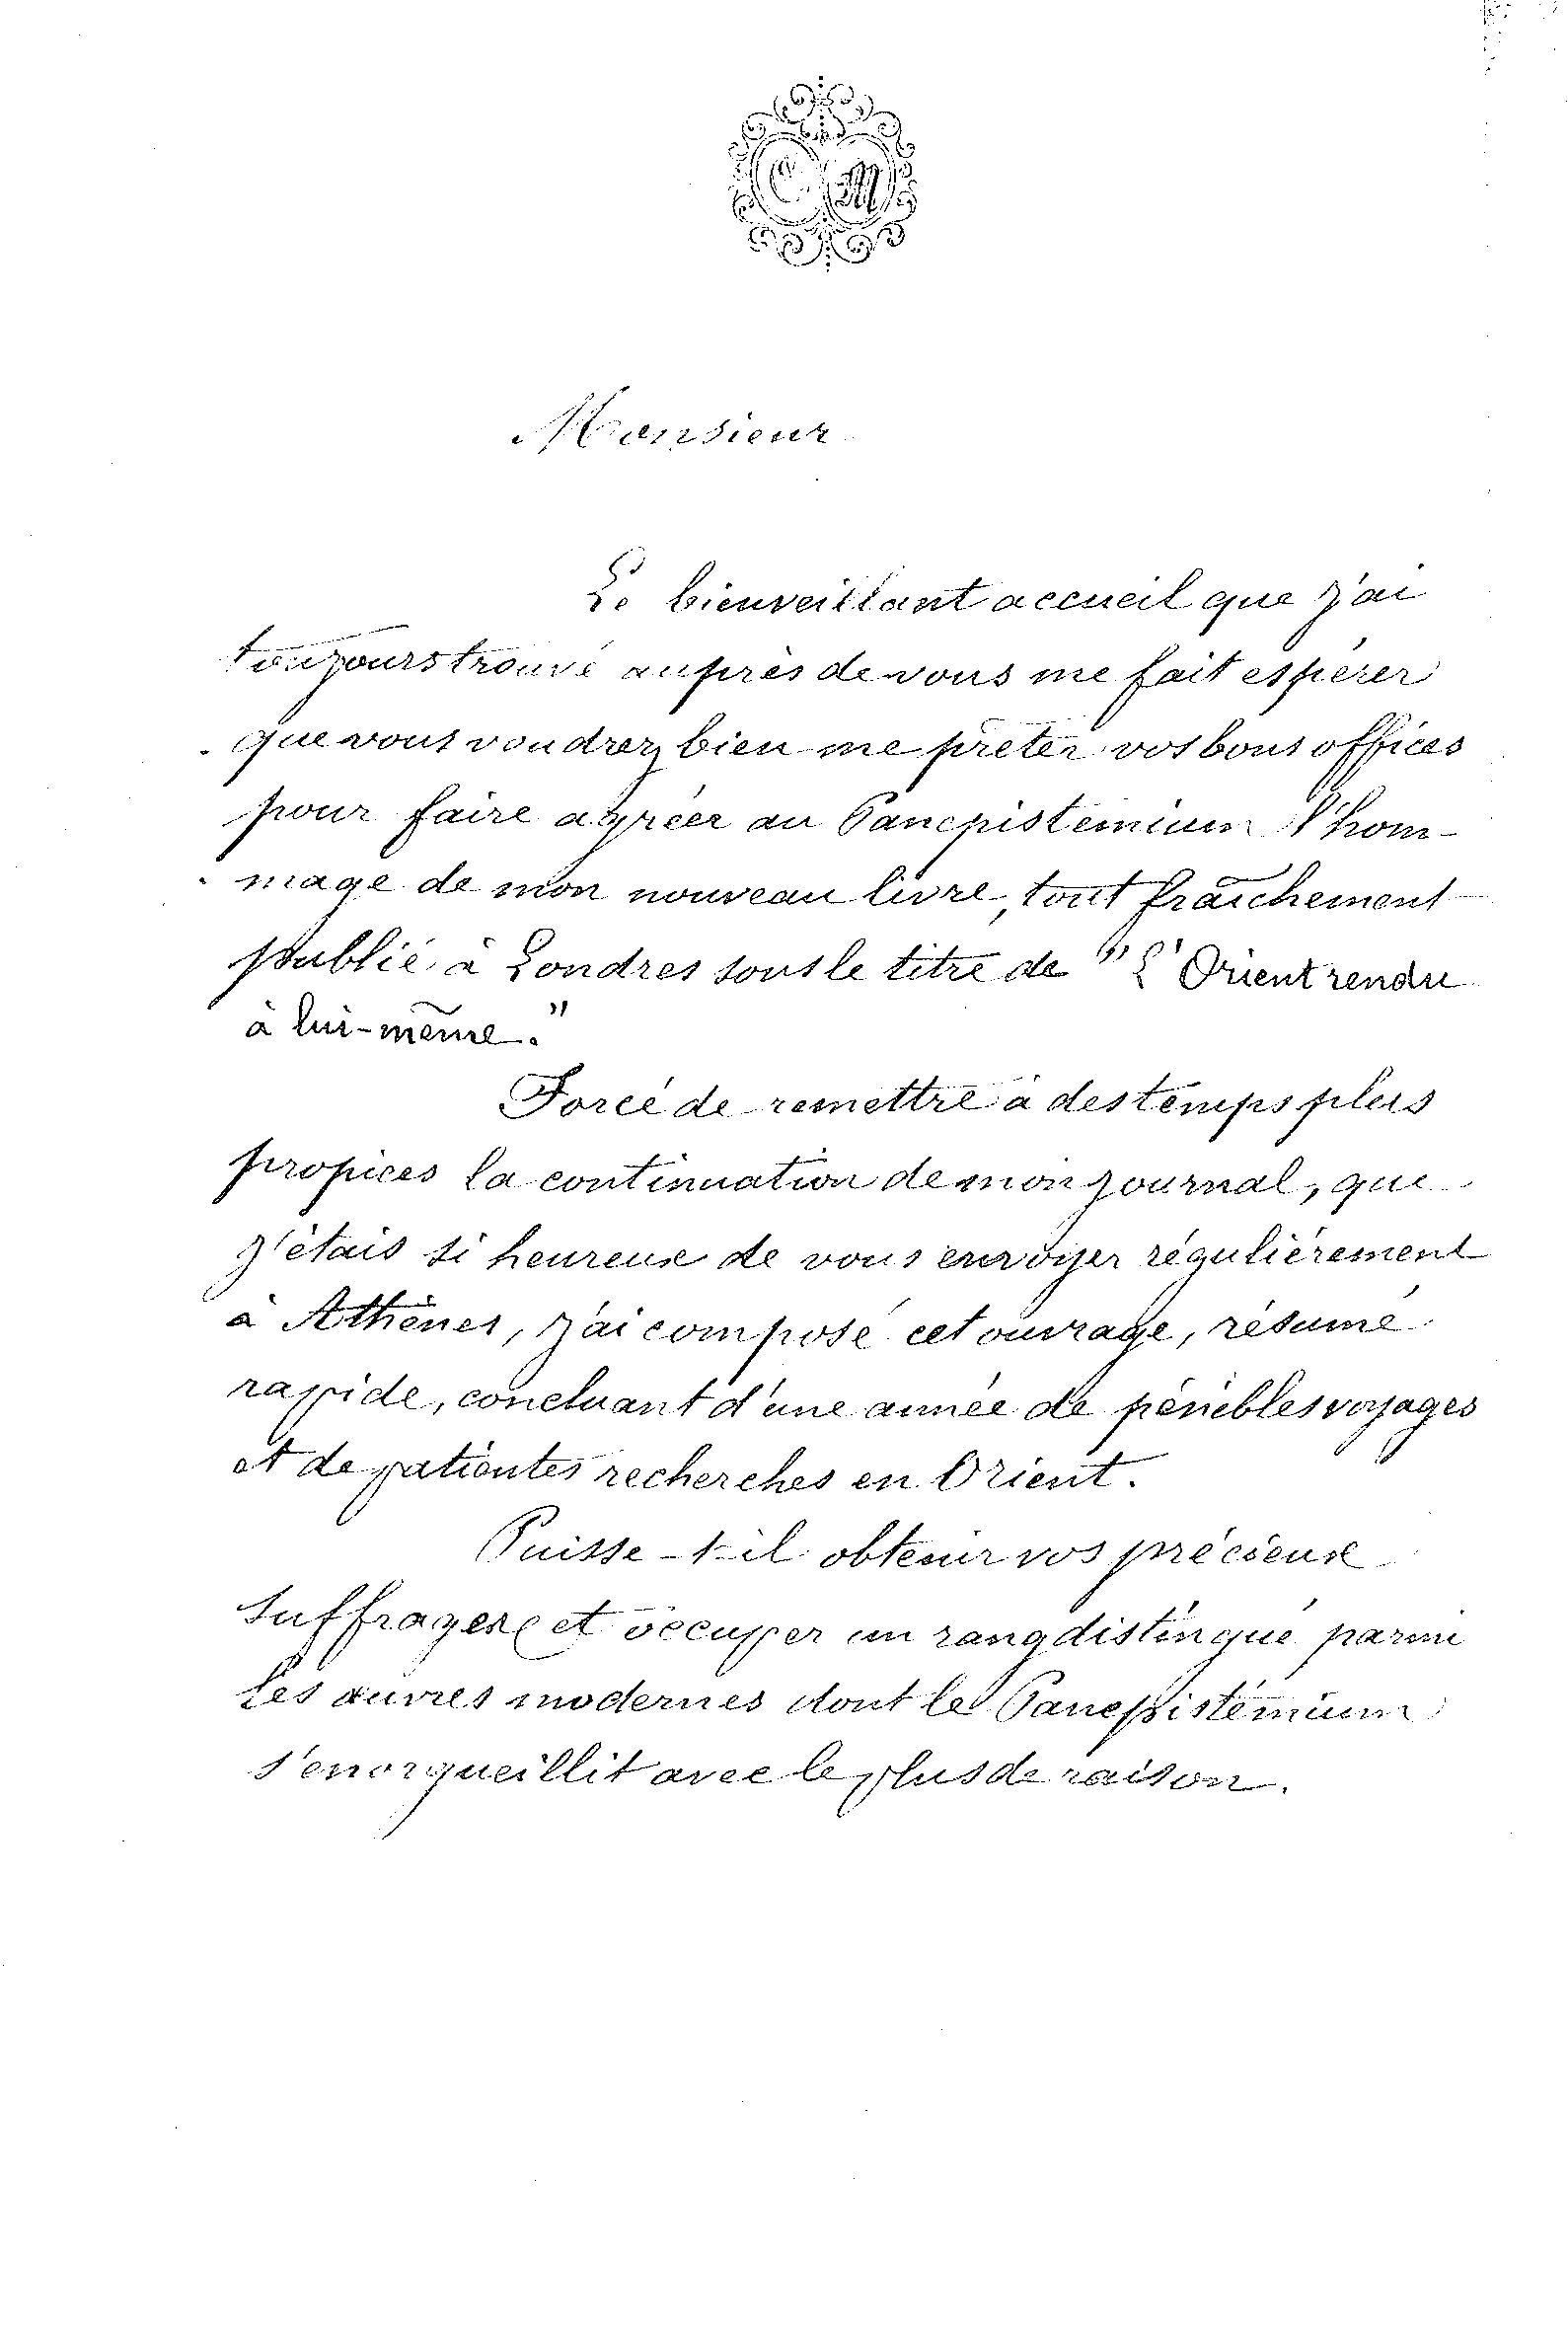 C M
Monsieur
Le bienveillant accueil que j'ai
toujours trouvé auprès de vous me fait espérer
que vous voudrez bien me prêter vos bons offices
pour faire agréer au Panepistemium l'hom-
mage de mon nouveau livre, tout fraîchement
publié à Londres sous le titre de "L'Orient rendu
à lui-même."
Forcée de remettre à des temps plus
propices la continuation de mon journal, que
j'étais si heureuse de vous envoyer régulièrement
à Athènes, j'ai composé cet ouvrage, résumé
rapide, concluant d'une année de pénibles voyages
et de patientes recherches en Orient.
Puisse-t-il obtenir vos précieux
suffrages et occuper un rang distingué parmi
les œuvres modernes dont le Panepistemium
s'enorgueillit avec le plus de raison.